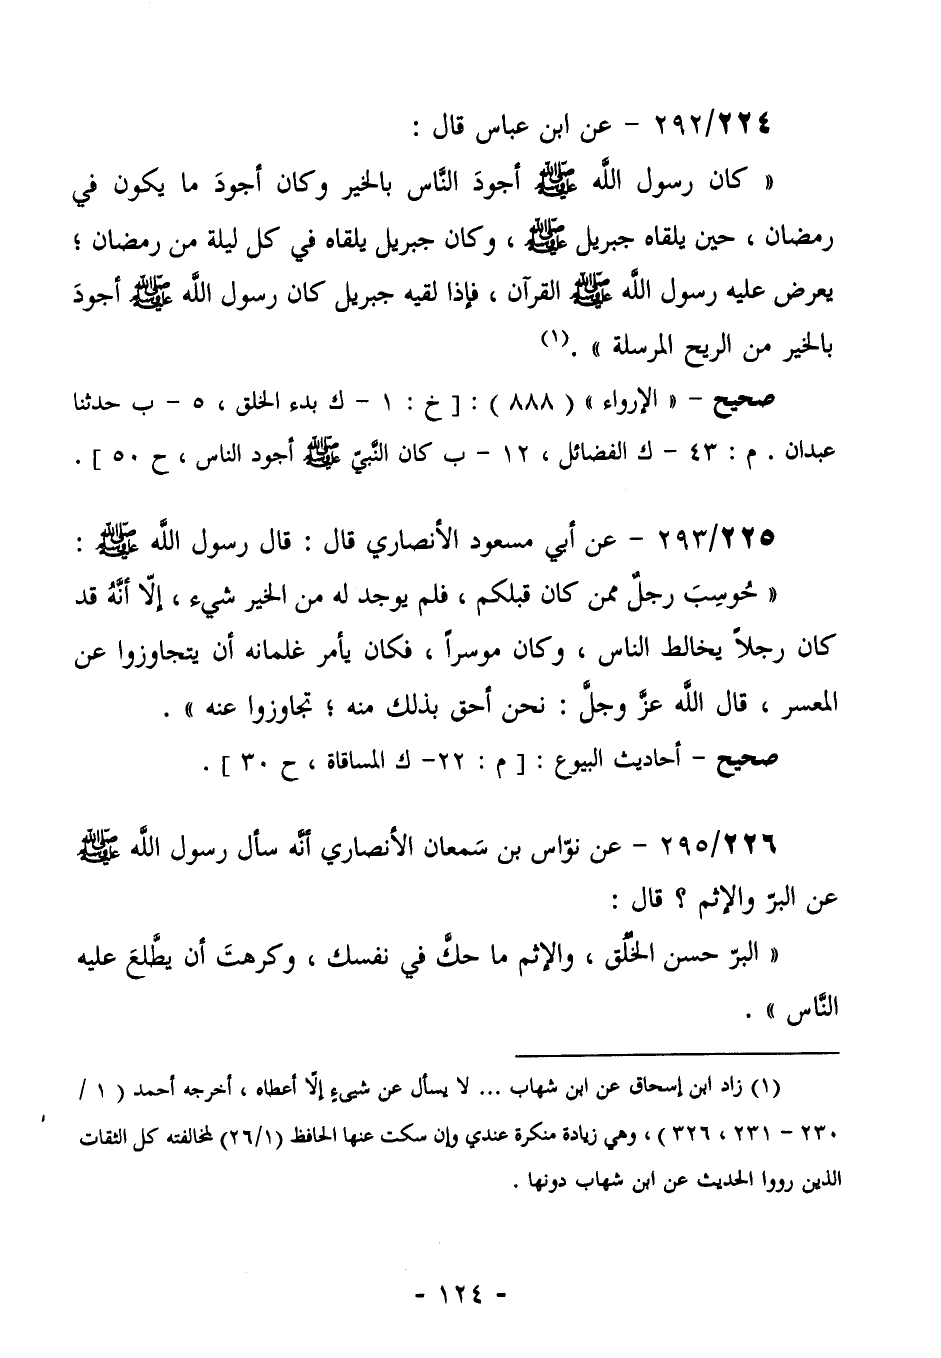 ٢٩٢/٢٢٤ – عن ابن عباس قال :
« كان رسول اللَّه ﷺ أجودَ النَّاس بالخير وكان أجودَ ما يكون في
رمضان ، حين يلقاه جبريل ﷺ ، وكان جبريل يلقاه في كل ليلة من رمضان ؛
يعرض عليه رسول اللَّه ﷺ القرآن ، فإذا لقيه جبريل كان رسول اللَّه ﷺ أجودَ
بالخير من الريح المرسلة » .(١)
صحيح – « الإرواء » ( ٨٨٨ ) : [ خ : ١ – ك بدء الخلق ، ٥ – ب حدثنا
عبدان . م : ٤٣ – ك الفضائل ، ١٢ – ب كان النَّبيّ ﷺ أجود الناس ، ح ٥٠ ] .
٢٩٣/٢٢٥ – عن أبي مسعود الأنصاري قال : قال رسول اللَّه ﷺ :
« حُوسِبَ رجلٌ ممن كان قبلكم ، فلم يوجد له من الخير شيء ، إلّا أنَّهُ قد
كان رجلاً يخالط الناس ، وكان موسراً ، فكان يأمر غلمانه أن يتجاوزوا عن
المعسر ، قال اللَّه عزَّ وجلَّ : نحن أحق بذلك منه ؛ تجاوزوا عنه » .
صحيح – أحاديث البيوع : [ م : ٢٢– ك المساقاة ، ح ٣٠ ] .
٢٩٥/٢٢٦ – عن نوّاس بن سَمعان الأنصاري أنَّه سأل رسول اللَّه ﷺ
عن البرّ والإثم ؟ قال :
« البرّ حسن الخُلُق ، والإثم ما حكَّ في نفسك ، وكرهتَ أن يطَّلعَ عليه
النَّاس » .
(١) زاد ابن إسحاق عن ابن شهاب ... لا يسأل عن شيءٍ إلّا أعطاه ، أخرجه أحمد ( ١ /
٢٣٠ – ٢٣١ ، ٣٢٦ ) ، وهي زيادة منكرة عندي وإن سكت عنها الحافظ (٢٦/١) لمخالفته كل الثقات
الذين رووا الحديث عن ابن شهاب دونها .
- ١٢٤ -